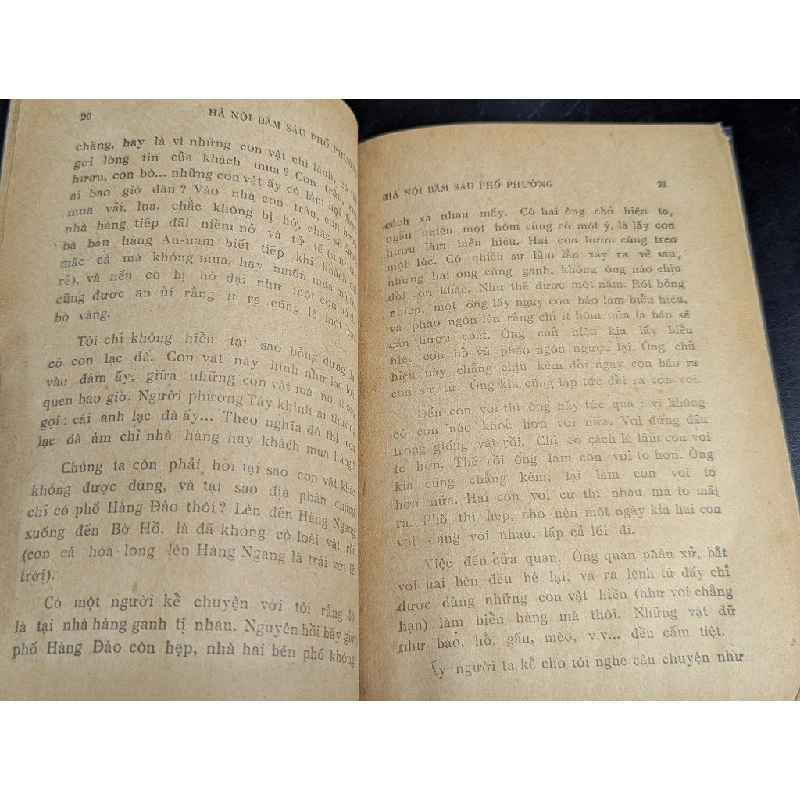 20 HÀ NỘI BĂM SÁU PHỐ PHƯỜNG
chăng, hay là vì những con vật chỉ lành, có
gợi lòng tin của khách mua? Con trâu, con
hươu, con bò... những con vật ấy có làm hại
ai bao giờ đâu? Vào nhà con trâu, con
mua vải, lụa, chắc không bị hớ, chắc sẽ được
nhà hàng tiếp đãi niềm nở và tử tế
bà bán hàng An-nam biết tiếp khi khách trả
mặc cả mà không mua, hay muốn mua
rẻ), và nếu có bị hớ dại như một con
cũng được an ủi rằng ít ra cũng là một con
bò vàng.
Tôi chỉ không hiểu tại sao bỗng dưng lại
có con lạc đà. Con vật này hình như lạc lối
vào đám ấy, giữa những con vật mà nó
quen bao giờ. Người phương Tây khinh ai thường
gọi: cái anh lạc đà ấy... Theo nghĩa đó thì con
lạc đà ám chỉ nhà hàng hay khách mua hàng?
Chúng ta còn phải hỏi tại sao con vật khác
không được dùng, và tại sao địa phận
chỉ có phố Hàng Đào thôi? Lên đến Hàng Ngang
xuống đến Bờ Hồ, là đã không có loài vật rồi
(con cá hóa long lên Hàng Ngang là trái với lẽ
trời).
Có một người kể chuyện với tôi rằng đó
là tại nhà hàng ganh tị nhau. Nguyên hồi bấy giờ
phố Hàng Đào còn hẹp, nhà hai bên phố không
HÀ NỘI BĂM SÁU PHỐ PHƯỜNG 21
cách xa nhau mấy. Có hai ông chủ hiệu to,
ngẫu nhiên một hôm cùng có một ý, là lấy con
hươu làm biển hiệu. Hai con hươu cùng treo
một lúc. Có nhiều sự lầm lẫn xảy ra về sau,
nhưng hai ông cùng gánh, không ông nào chịu
đổi con khác. Như thế được một năm. Rồi bỗng
nhiên, một ông lấy ngay con báo làm biển hiệu,
và phao ngôn lên rằng chỉ ít hôm nữa là báo sẽ
cắn hươu chết. Ông chủ hiệu kia lấy biển
hiệu con hổ và phao ngôn ngược lại. Ông chủ
hiệu này chẳng chịu kém đổi ngay con báo ra
con sư tử. Ông kia cũng lập tức đổi ra con voi.
Đến con voi thì ông này tức quá: vì không
có con nào khỏe hơn voi nữa. Voi đứng đầu
trong giống vật rồi. Chỉ có cách là làm con voi
to hơn. Thế rồi ông làm con voi to hơn. Ông
kia cũng chẳng kém, lại làm con voi to
hơn nữa. Hai con voi cứ thi nhau mà to mãi
ra. Phố thì hẹp, cho nên một ngày kia hai con
voi đụng voi nhau, lấp cả lối đi.
Việc đến cửa quan. Ông quan phân xử, bắt
voi hai bên đều hè lại, và ra lệnh từ đấy chỉ
được dùng những con vật hiền (như voi chẳng
hạn) làm biển hàng mà thôi. Những vật dữ
như báo, hổ, gấu, mèo, v.v... đều cấm tiệt.
Ấy người ta kể cho tôi nghe câu chuyện như